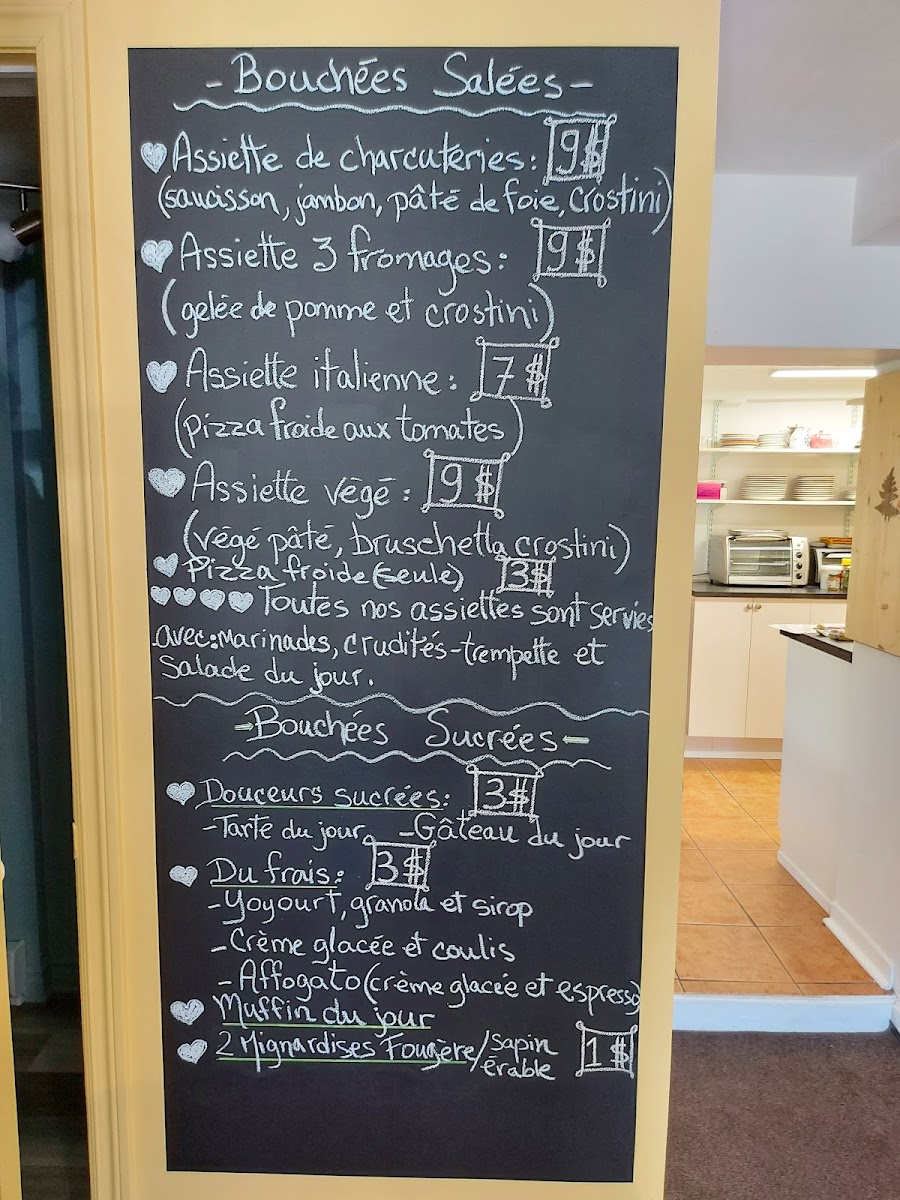 - Bouchées Salées -
Assiette de charcuteries: 9$
(saucisson, jambon, pâté de foie, crostini)
Assiette 3 fromages: 9$
(gelée de pomme et crostini)
Assiette italienne: 7$
(pizza froide aux tomates)
Assiette végé: 9$
(végé pâté, bruschetta crostini)
Pizza froide (seule) 3$
Toutes nos assiettes sont servies
avec: marinades, crudités-trempette et
salade du jour.
Bouchées Sucrées
Douceurs sucrées: 3$
- Tarte du jour - Gâteau du jour
Du frais: 3$
- Yoyourt, granola et sirop
- Crème glacée et coulis
- Affogato (crème glacée et espresso)
Muffin du jour
2 Mignardises Fougère/sapin érable 1$